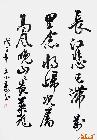 長江悲已滯萬
里念將歸況屬
高風晚山山黃葉飛